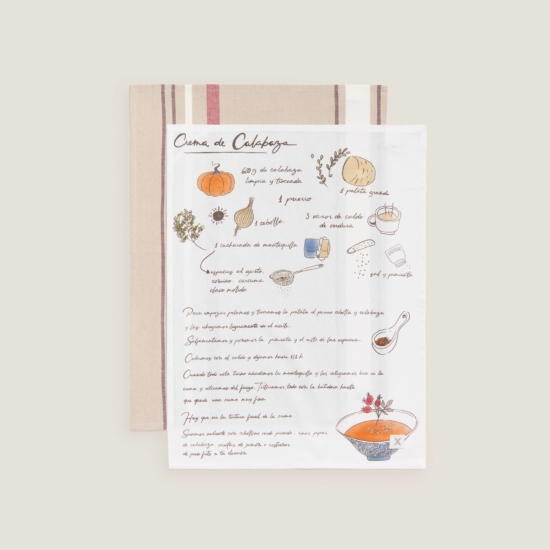 Crema de Calabaza
600 g de calabaza
limpia y troceada
1 patata grande
1 puerro
1 cebolla
3 vasos de caldo
de verdura
1 cucharada de mantequilla
sal y pimienta
especias al gusto,
comino, curcuma
clavo molido
Para empezar pelamos y troceamos la patata el puerro cebolla y calabaza
y las rehogamos ligeramente en el aceite.
Salpimentamos y ponemos la pimienta y el resto de las especias.
Cubrimos con el caldo y dejamos hervir 1/2 h
Cuando todo este tierno añadimos la mantequilla y las
crema y retiramos del fuego. Trituramos todo con la batidora hasta
que quede una crema muy fina.
Hay que ver la textura final de la crema
Servimos caliente con cebollino picado, unas pipas
de calabaza,
de pan frito a tu
X